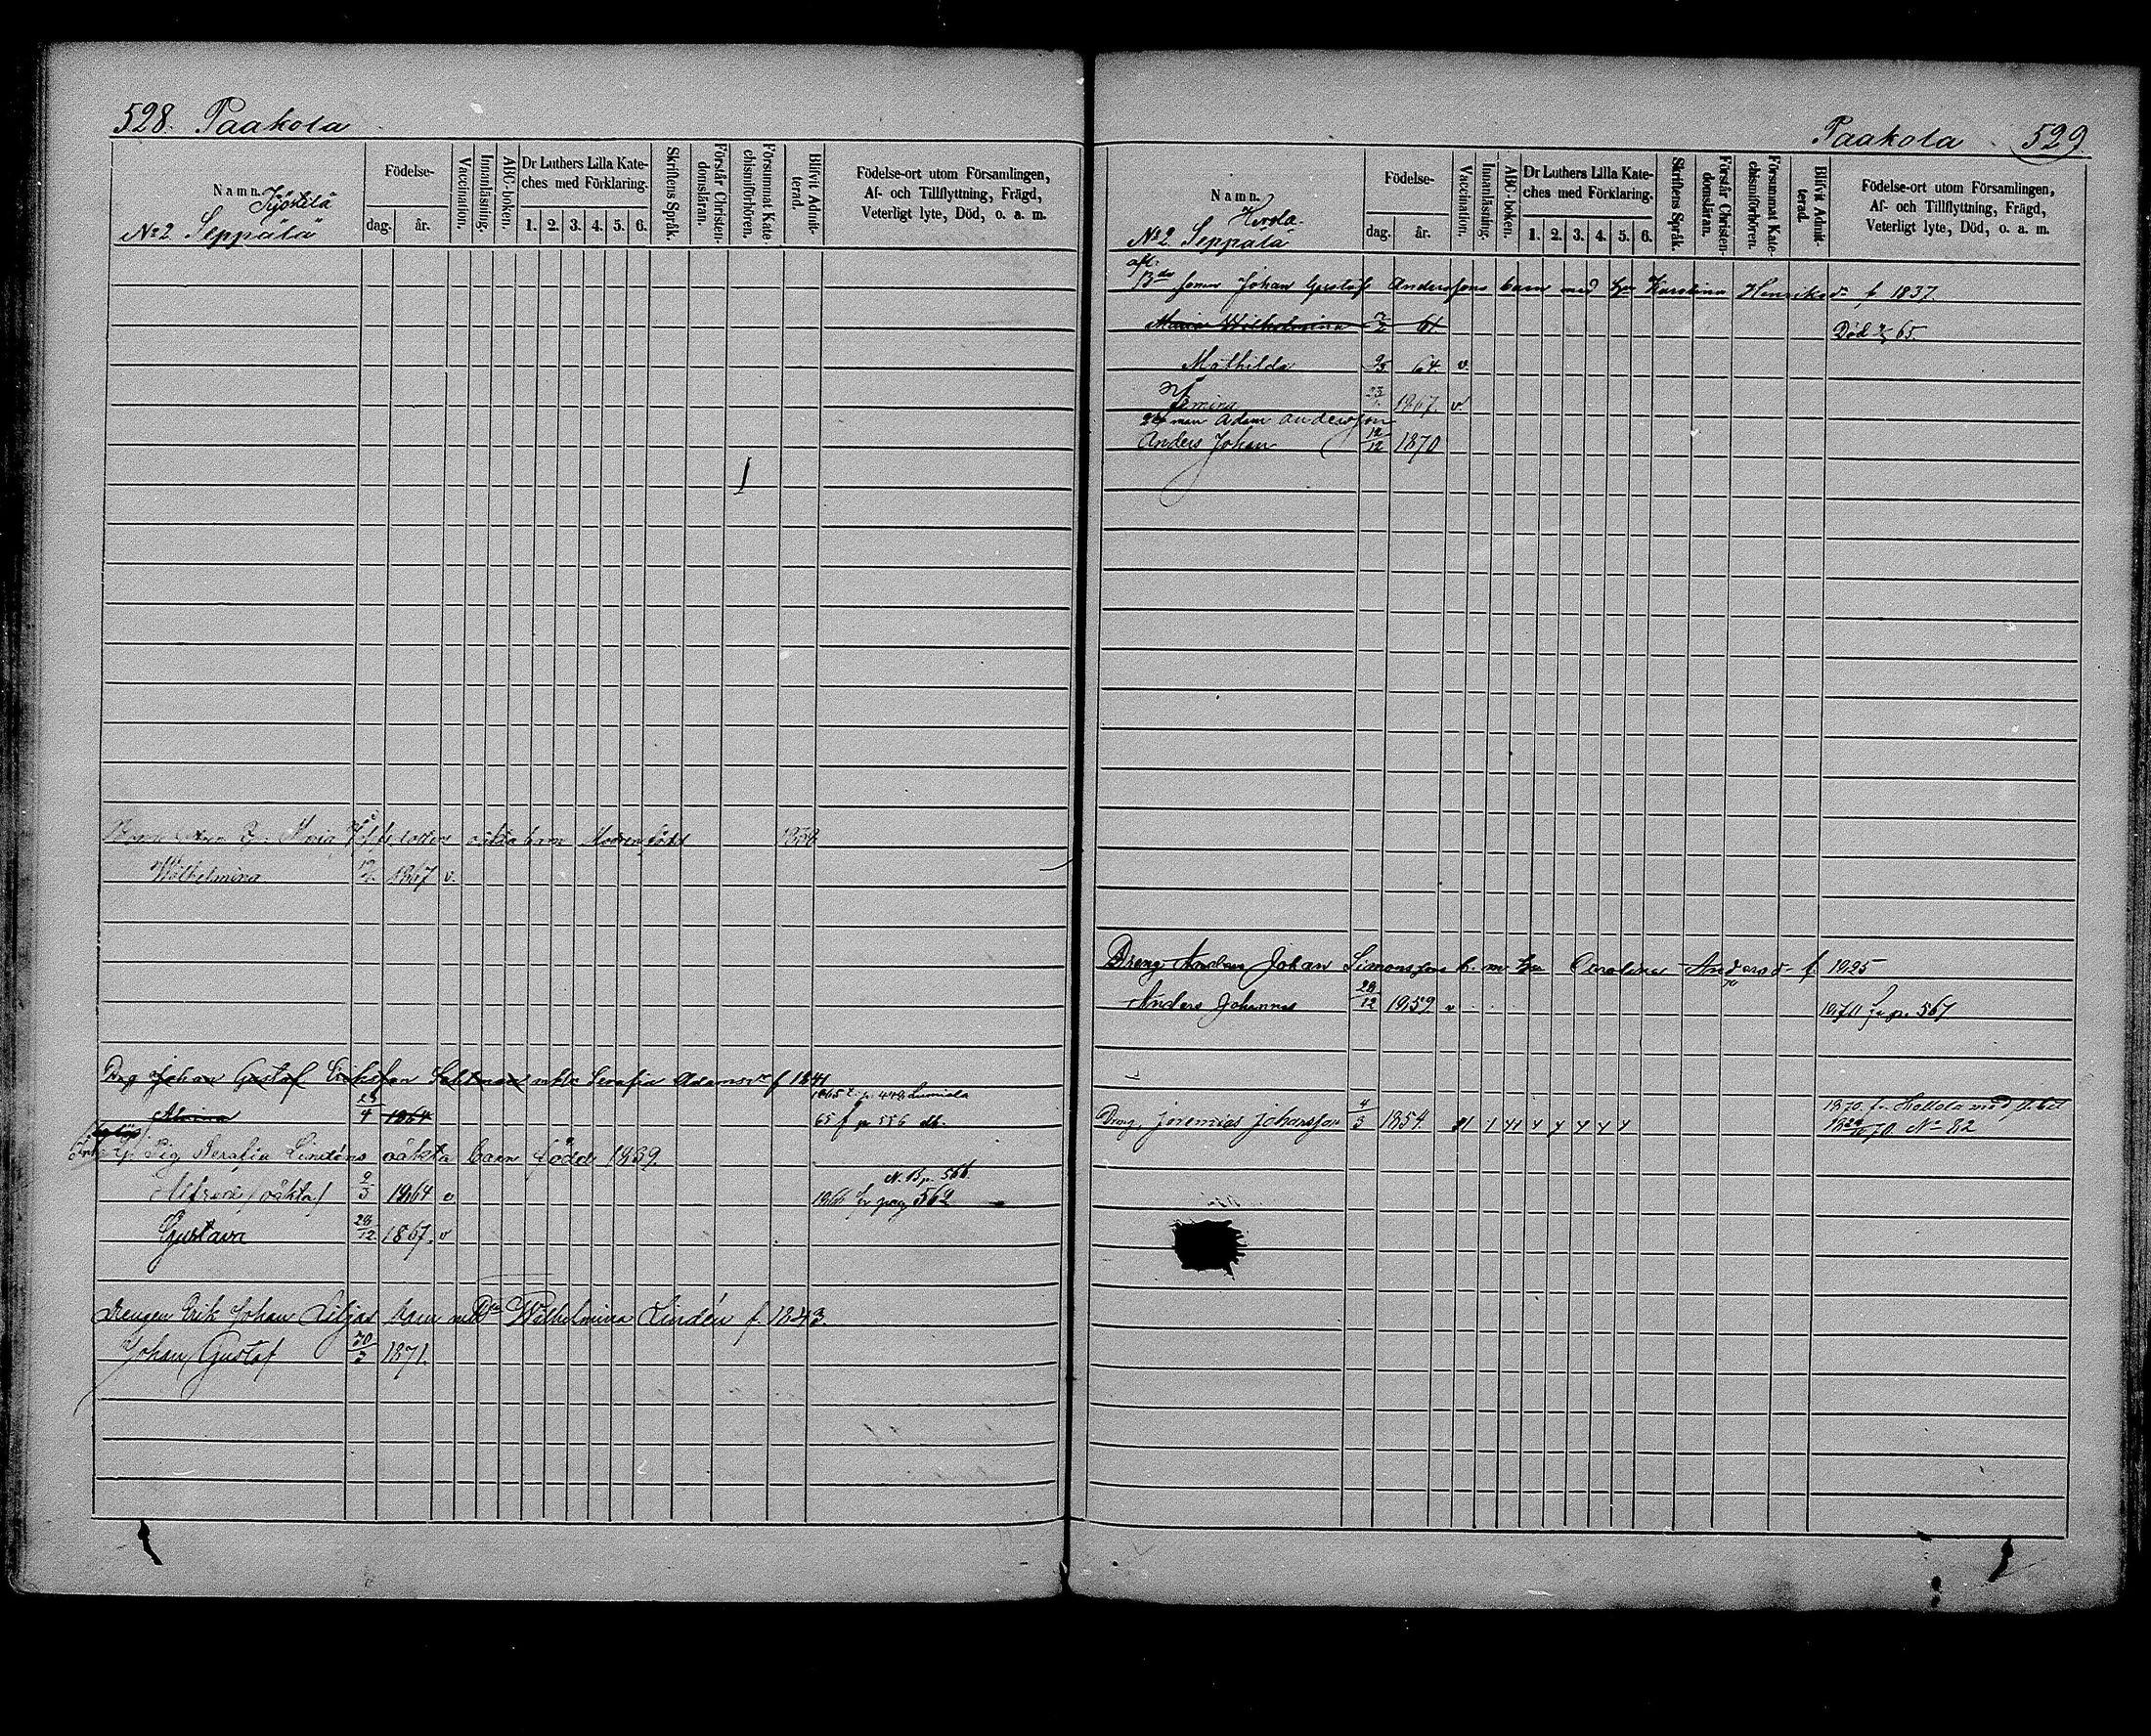 528. Paakola
Namn.
Kjöstilä
No 2 Seppälä
Födelse-
dag.
år.
Vaccination.
Innanläsning.
ABC-boken.
Dr Luthers Lilla Kate-
ches med Förklaring.
1. 2. 3. 4. 5. 6.
Skriftens Språk.
Förstår Christen-
domsläran.
Försummat Kate-
chismiförhören.
Blifvit Admit-
terad.
Födelse-ort utom Församlingen,
Af- och Tillflyttning, Frägd,
Veterligt lyte, Död, o. a. m.
Maria oäkta barn Modren född
Wilhelmina 1867 v.
Drg Johan Gustaf Eriksson Sahlman Serafia Adamsdr f 1841
1865 p. 448
Alvina 23/4 1864 65 f p 556 db.
Pig Serafia Lindéns oäkta barn född 1839.
N. B p. 566.
Alfred (oäkta) 9/3 1864 v 1866 fr pag 562
Gustava 28/12 1867. v
Drengen Erik Johan Liljas barn med Wilhelmina Lindén f. 1843.
Johan Gustaf 1871.
Paakola 529
Namn.
No 2 Seppälä
Födelse-
dag.
år.
Vaccination.
Innanläsning.
ABC-boken.
Dr Luthers Lilla Kate-
ches med Förklaring.
1. 2. 3. 4. 5. 6.
Skriftens Språk.
Förstår Christen-
domsläran.
Försummat Kate-
chismiförhören.
Blifvit Admit-
terad.
Födelse-ort utom Församlingen,
Af- och Tillflyttning, Frägd,
Veterligt lyte, Död, o. a. m.
afl.
Bds sonen Johan Gustaf Anderssons barn med Hu Karolina Henriksdr f. 1837.
Maria Wilhelmina 61 Död 65.
Mathilda 64. v.
1867. v.
man Adam andersson
Anders Johan 12/12 1870
Dreng Johan Simonssons b. m Hu Carolina Andersdr f. 1825
Anders Johannes 28/12 1859 v 1870 fr p. 567
1870. fr. Hollola med
Dreng, Jeremias Johansson 4/3 1854. No 82